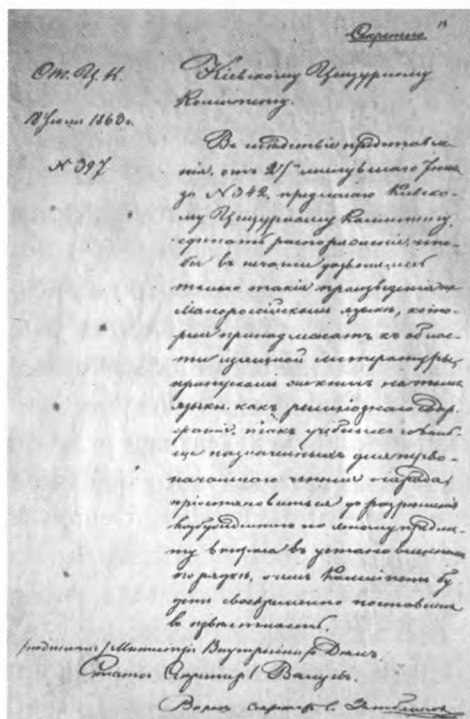 Секретно.
От. Ц. К.
Кіевскому Цензурному
Комитету.
18 Іюля 1863 г.
Въ слѣдствіе представле-
№ 397
нія, отъ 27 минувшаго Іюня
за № 342, предлагаю Кіевско-
му Цензурному Комитету
сдѣлать распоряженіе, что-
бы въ печати дозволялись
только такія произведенія на
Малороссійскомъ языкѣ, кото-
рыя принадлежатъ къ облас-
ти изящной литературы,
пропускомъ книгъ на томъ
языкѣ, какъ религіознаго
такъ учебныхъ и вооб-
ще назначенныхъ для перво-
начальнаго чтенія народа,
пріостановиться до разрѣшенія
возбужденнаго по этому предме-
ту вопроса въ установленномъ
порядкѣ, о чемъ Комитетъ бу-
детъ своевременно поставленъ
въ извѣстность.
(подписалъ) Министръ Внутреннихъ Дѣлъ,
Статсъ Секретарь Валуевъ.
Вѣрно Секретарь